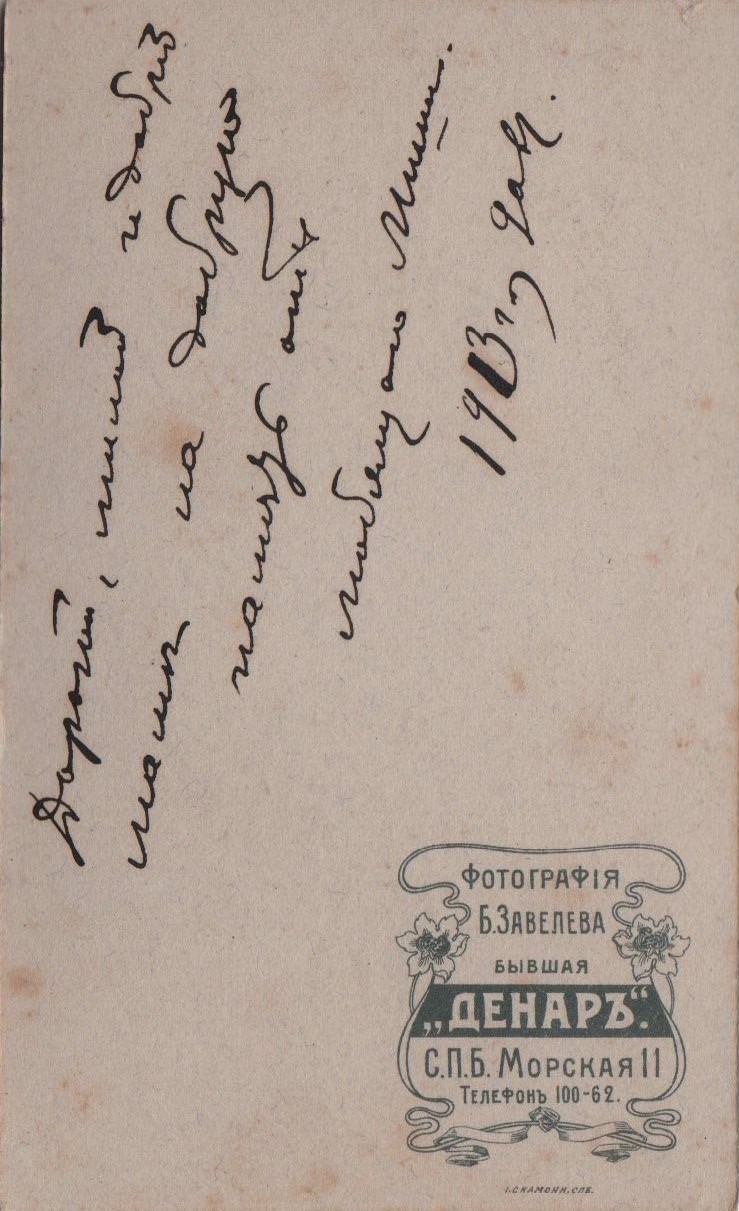 Дорогой, милой и доброй
мамѣ на добрую
память отъ
любящаго Миши.
1913 г.
ФОТОГРАФІЯ
Б. ЗАВЕЛЕВА
БЫВШАЯ
„ДЕНАРЪ“.
С.П.Б. МОРСКАЯ 11
ТЕЛЕФОНЪ 100-62.
І. СКАМОНИ, СПБ.